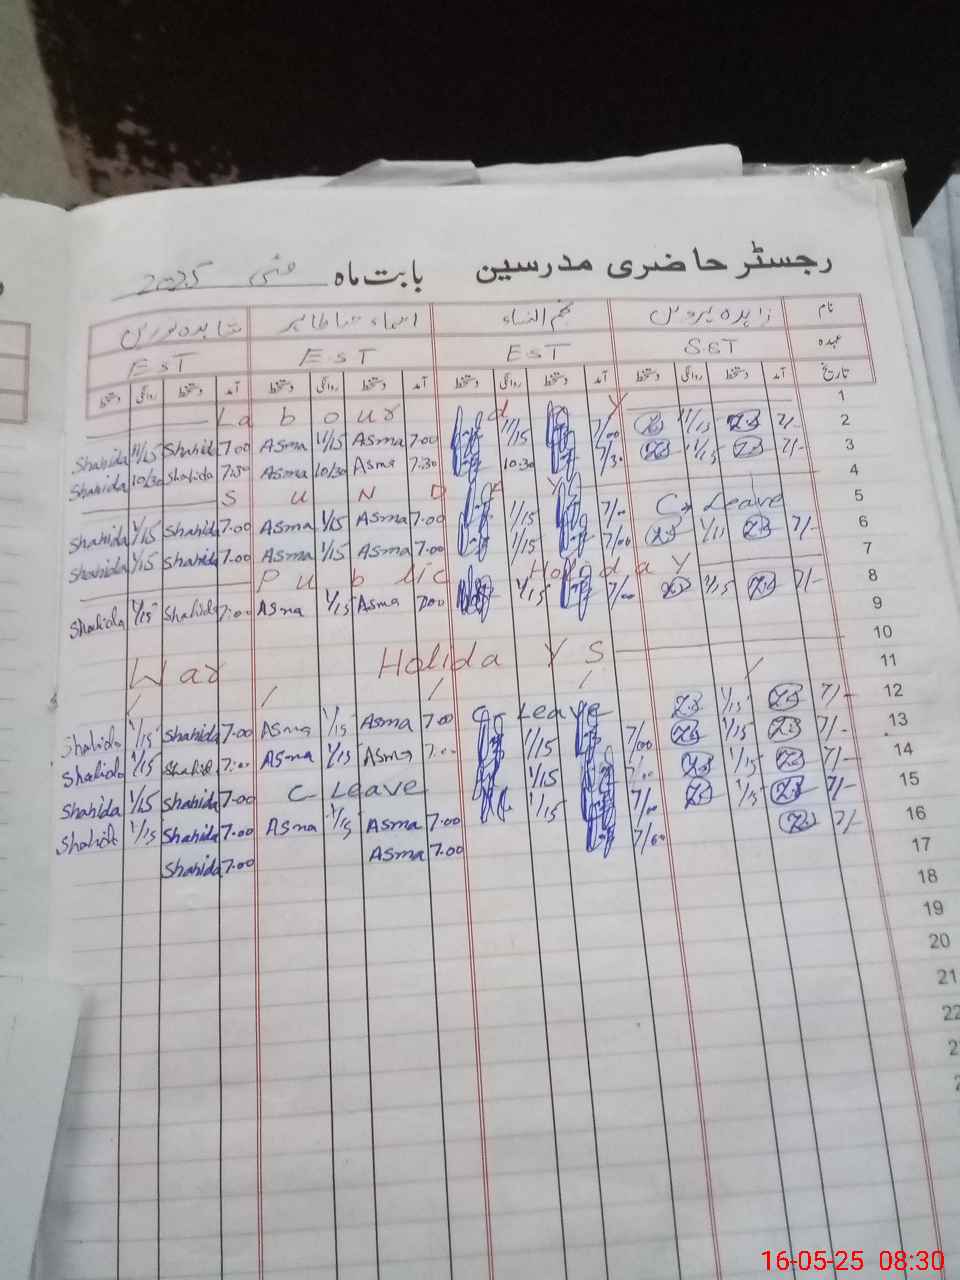 رجسٹر حاضری مدرسین بابت ماہ مئی 2025
نام زاہدہ پروین نجم النساء اسماء حنا طاہر شاہدہ پروین
عہدہ SST EST EST EST
تاریخ آمد دستخط روانگی دستخط آمد دستخط روانگی دستخط آمد دستخط روانگی دستخط آمد دستخط روانگی دستخط
Labour day 1
Shahida 11/15 Shahid 7.00 Asma 11/15 Asma 7.00 11/15 7/00 ZB 11/15 ZB 7/- 2
Shahida 10/30 Shahida 7.30 Asma 10/30 Asma 7.30 10:30 7/30 ZB 11/15 ZB 7/- 3
SUNDAY 4
Shahida 1/15 Shahida 7.00 Asma 1/15 Asma 7.00 1/15 7/00 C-Leave 5
Shahida 1/15 Shahida 7.00 Asma 1/15 Asma 7.00 1/15 7/00 ZB 1/15 ZB 7/- 6
Public Holiday 7
Shahida 1/15 Shahida 7:00 Asma 1/15 Asma 7.00 1/15 7/00 ZB 1/15 ZB 7/- 8
9
10
War Holidays
11
Shahida 1/15 Shahida 7.00 Asma 1/15 Asma 7.00 C-Leave ZB 1/15 ZB 7/- 12
Shahida 1/15 Shahid 7.00 Asma 1/15 Asma 7.00 1/15 7/00 ZB 1/15 ZB 7/- 13
Shahida 1/15 Shahida 7.00 C Leave 1/15 7/00 ZB 1/15 ZB 7/- 14
Shahida 1/15 Shahida 7.00 Asma 1/15 Asma 7.00 1/15 7/00 ZB 1/15 ZB 7/- 15
Shahida 7.00 Asma 7.00 7/00 ZB 7/- 16
17
18
19
20
21
22
16-05-25 08:30